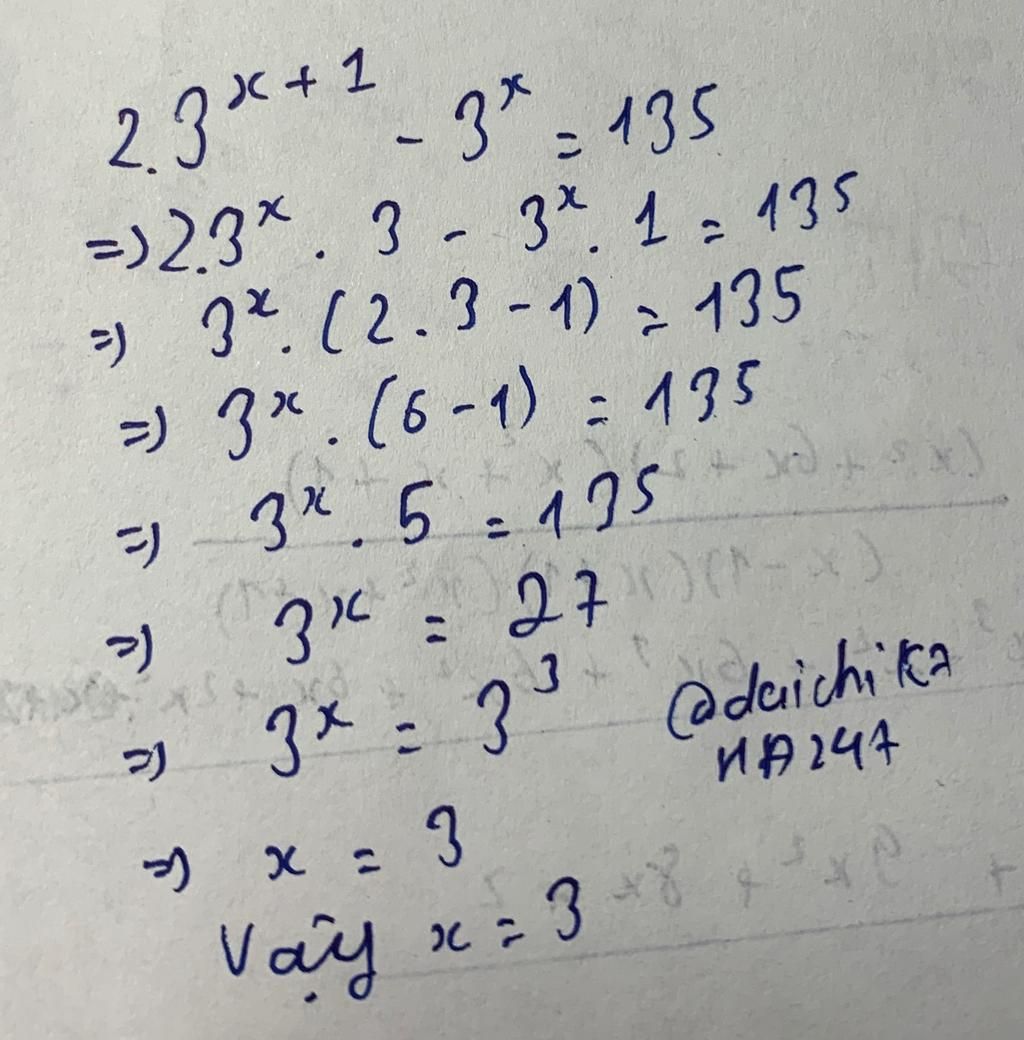 2.3^{x+1} - 3^x = 135
=> 2.3^x . 3 - 3^x . 1 = 135
=> 3^x . (2 . 3 - 1) = 135
=> 3^x . (6 - 1) = 135
=> 3^x . 5 = 135
=> 3^x = 27
=> 3^x = 3^3
=> x = 3
Vậy x = 3